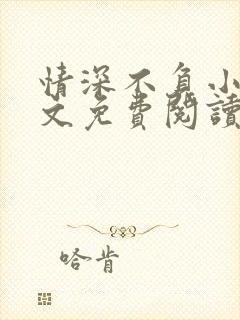 情深不負小
文免費閱讀
哈肯